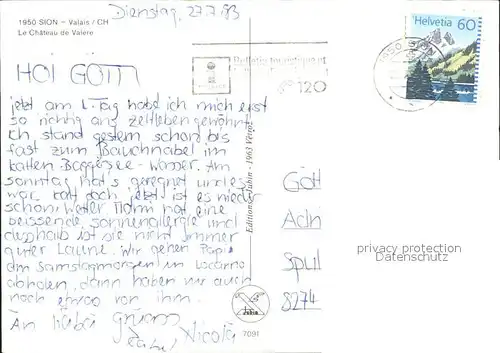 Dienstag, 27.7.93
1950 SION – Valais / CH
Le Château de Valère
HOI GÖTTI
jetzt am 1. Tag habe ich mich erst
so richtig ans Zeltleben gewöhnt.
Ich stand gestern schon bis
fast zum Bauchnabel im
kalten Baggersee-Wasser. Am
Sonntag hat's geregnet und es
war kalt doch jetzt ist es wieder
schön. Mami hat eine
beissende Sonnenallergie und
deshalb ist sie nicht immer
guter Laune. Wir gehen Papi
am Samstagmorgen in Locarno
abholen, dann haben wir auch
noch etwas von ihm.
An liebe Gruess
Nicole
Editions Jubin - 1963 Veyras
7091
1950 SION
120
Helvetia 60
Gött
Adn
Spul
8274
privacy protection
Datenschutz